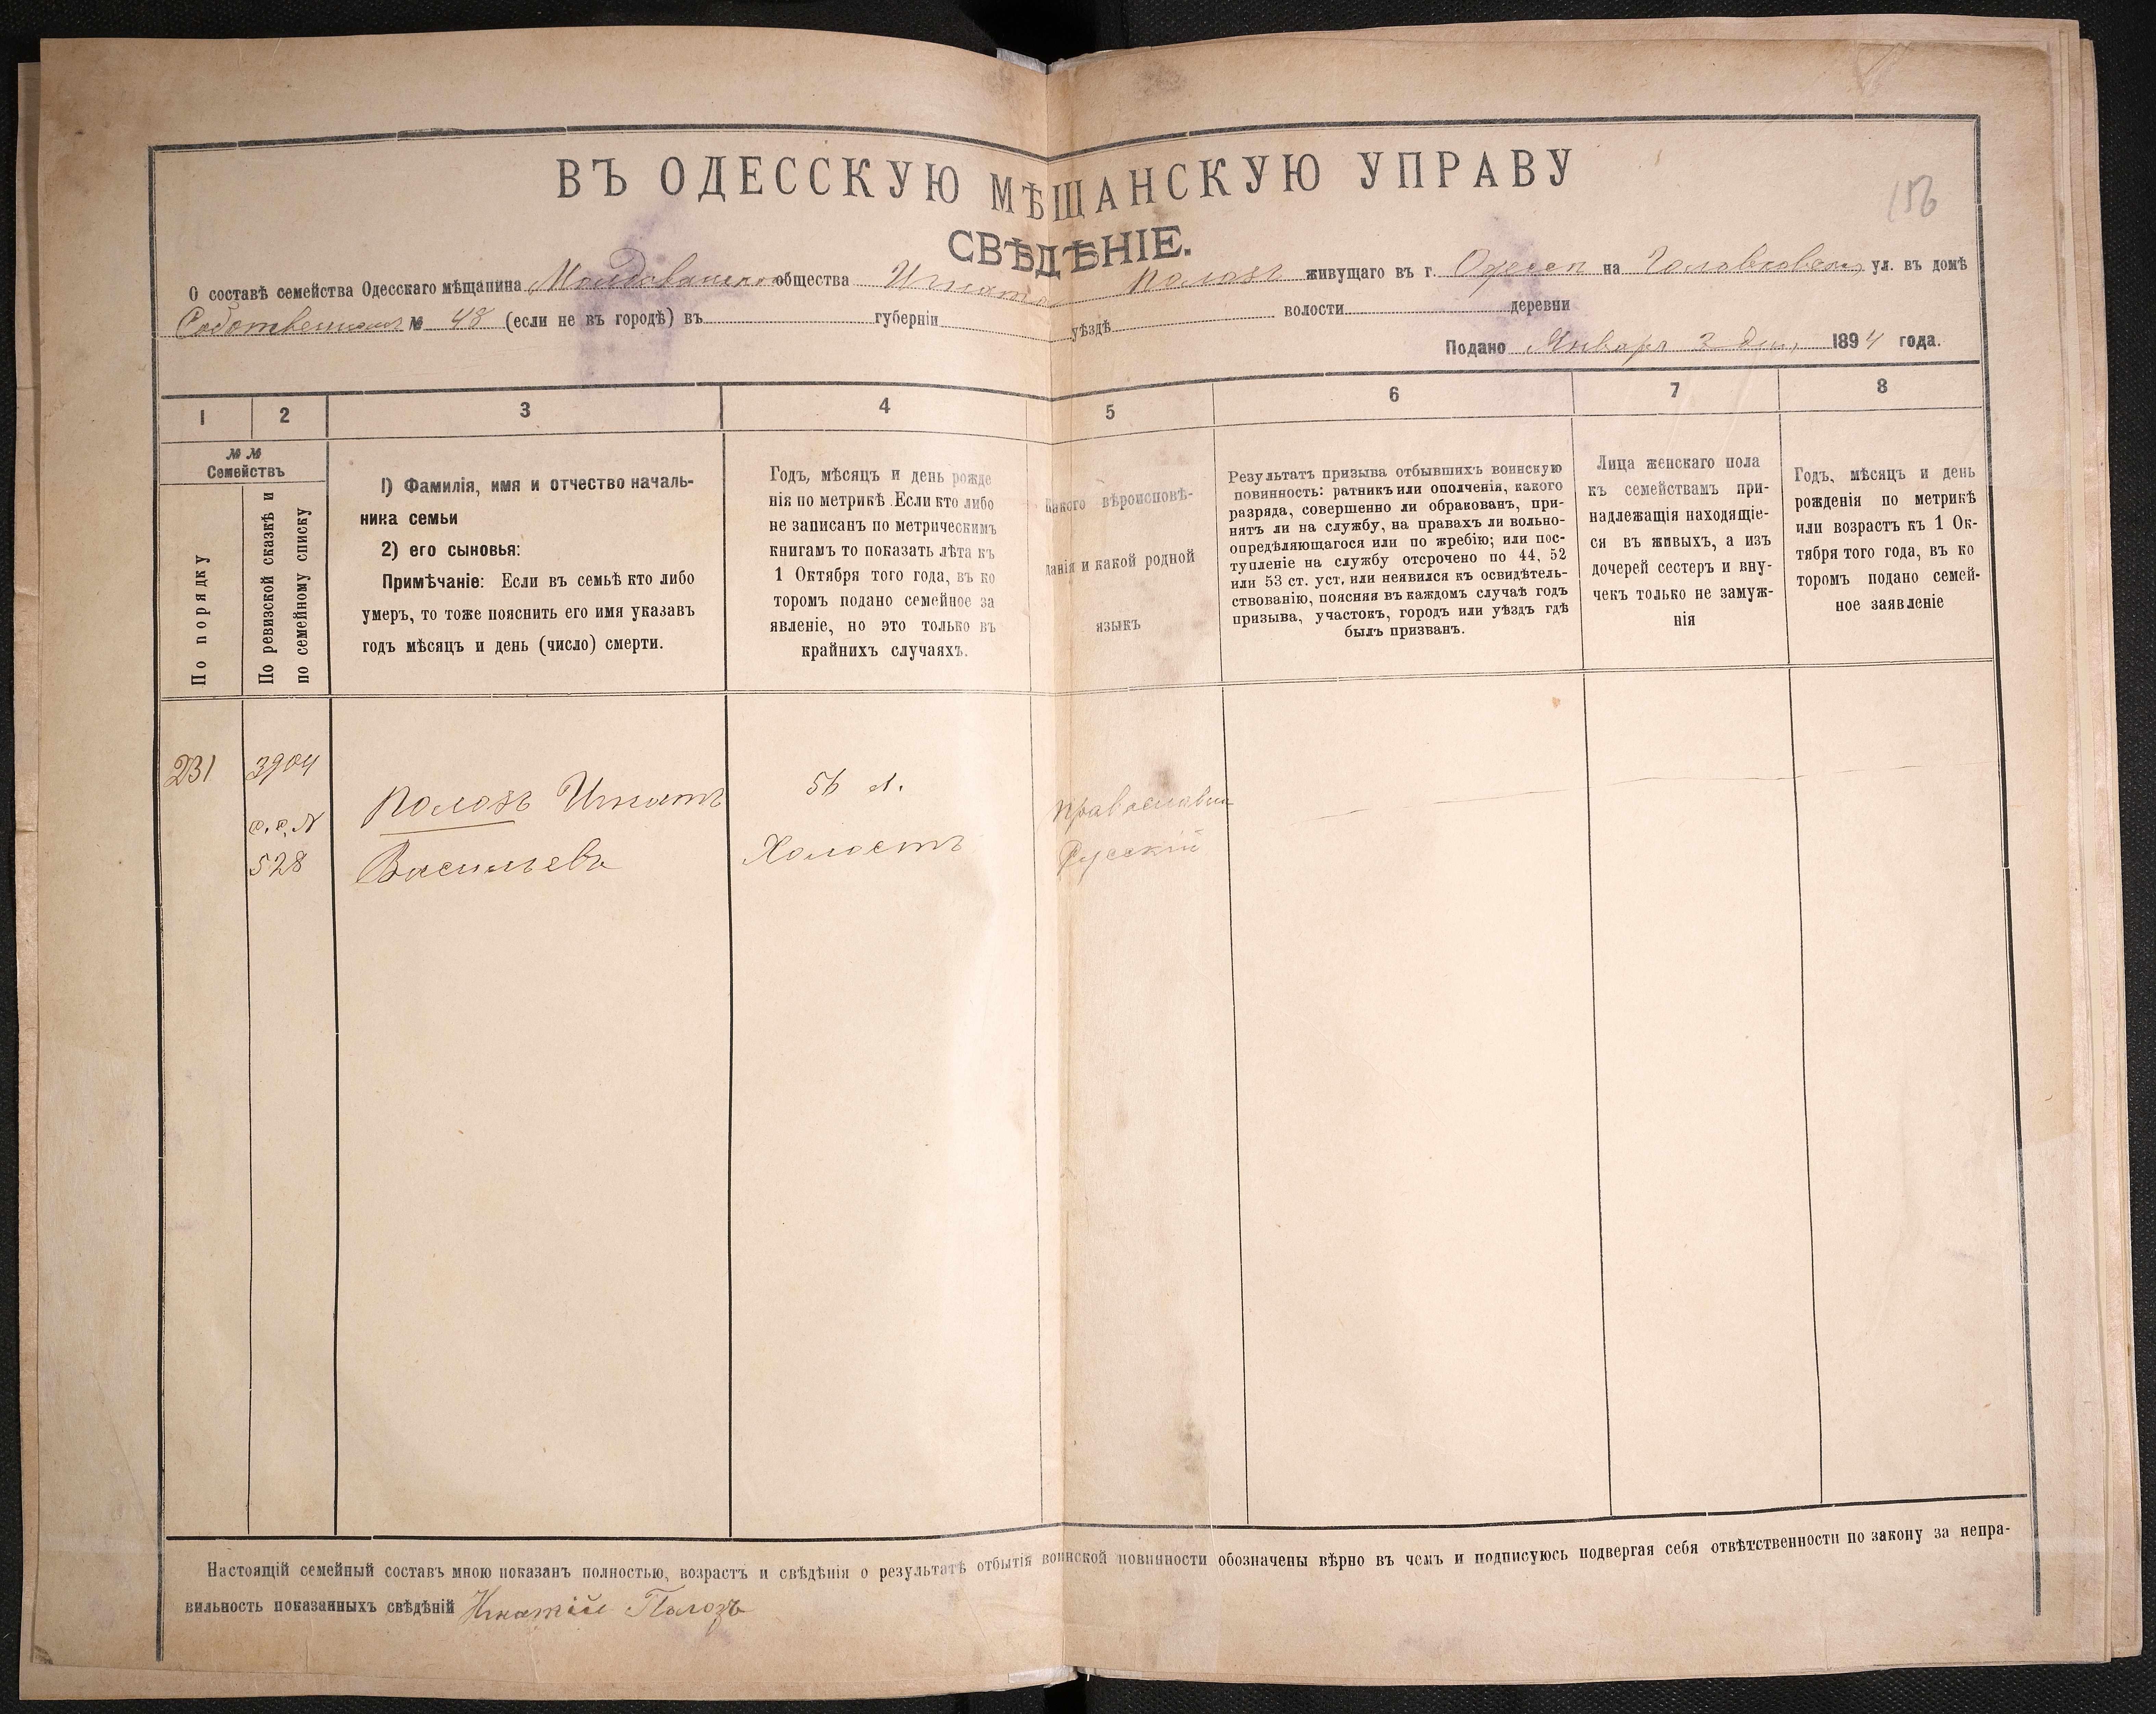 156
ВЪ ОДЕССКУЮ МѢЩАНСКУЮ УПРАВУ
СВѢДѢНІЕ.
О составѣ семейства Одесскаго мѣщанина Молдаванскаго общества Игната Полозъ живущаго въ г. Одессѣ на Головковской ул. въ домѣ
Собственномъ № 48 (если не въ городѣ) въ губерніи уѣздѣ волости деревни
Подано Январь 2 дня, 1894 года.
1 2 3 4 5 6 7 8
№ №
Семействъ
По порядку
По ревизской сказкѣ и
по семейному списку
1) Фамилія, имя и отчество началь-
ника семьи
2) его сыновья:
Примѣчаніе: Если въ семьѣ кто либо
умеръ, то тоже пояснить его имя указавъ
годъ мѣсяцъ и день (число) смерти.
Годъ, мѣсяцъ и день рожде
нія по метрикѣ. Если кто либо
не записанъ по метрическимъ
книгамъ то показать лѣта къ
1 Октября того года, въ ко
торомъ подано семейное за
явленіе, но это только въ
крайнихъ случаяхъ.
Какого вѣроисповѣ-
данія и какой родной
языкъ
Результатъ призыва отбывшихъ воинскую
повинность: ратникъ или ополченія, какого
разряда, совершенно ли обракованъ, при-
нятъ ли на службу, на правахъ ли вольно-
опредѣляющагося или по жребію; или пос-
тупленіе на службу отсрочено по 44, 52
или 53 ст. уст. или неявился къ освидѣтель-
ствованію, поясняя въ каждомъ случаѣ годъ
призыва, участокъ, городъ или уѣздъ гдѣ
былъ призванъ.
Лица женскаго пола
къ семействамъ при-
надлежащія находящіе-
ся въ живыхъ, а изъ
дочерей сестеръ и вну-
чекъ только не замуж-
нія
Годъ, мѣсяцъ и день
рожденія по метрикѣ
или возрастъ къ 1 Ок-
тября того года, въ ко
торомъ подано семей-
ное заявленіе
231
3904
с. с. N
528
Полозъ Игнатъ
Васильевъ
56 л.
Холостъ
Православн
Русскій
Настоящій семейный составъ мною показанъ полностью, возрастъ и свѣдѣнія о результатѣ отбытія воинской повинности обозначены вѣрно въ чемъ и подписуюсь подвергая себя отвѣтственности по закону за непра-
вильность показанныхъ свѣдѣній Игнатій Полозъ